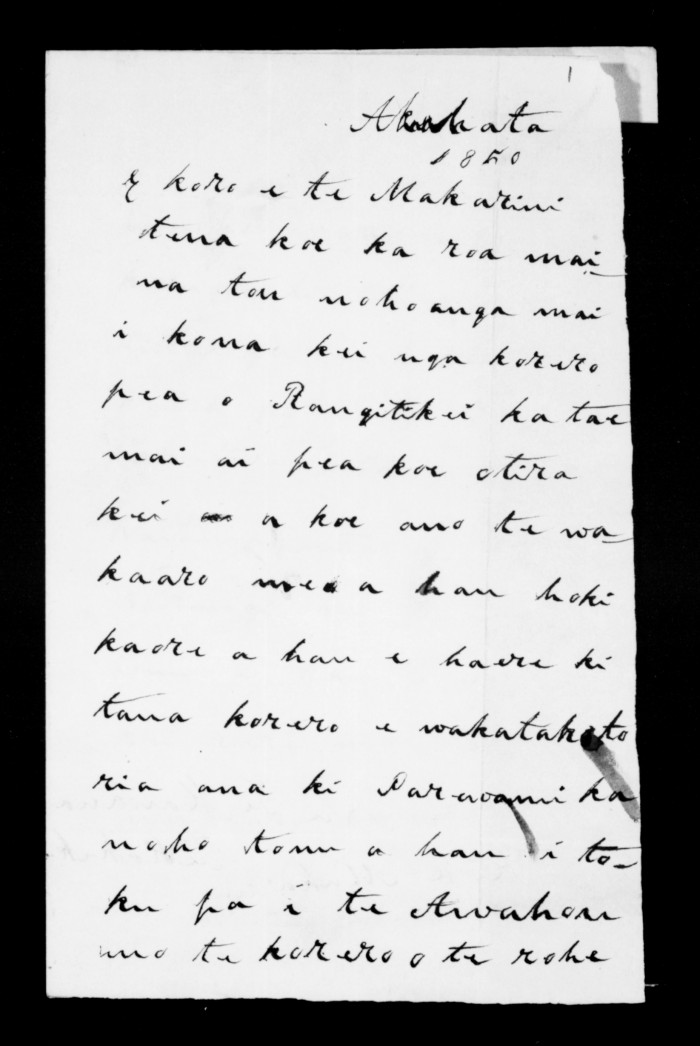 1
Akuhata
1850
E koro e te Makarini
tena koe ka roa mai
na tou nohoanga mai
i kona kei nga korero
pea o Rangitikei ka tae
mai ai pea koe otira
kei a koe ano te wa-
kaaro me a hau hoki
kaore a hau e haere ki
tana korero e wakatakoto
ria ana ki Parewanui ka
noho tonu a hau i to-
ku pa i te Awahou
mo te korero o te rohe